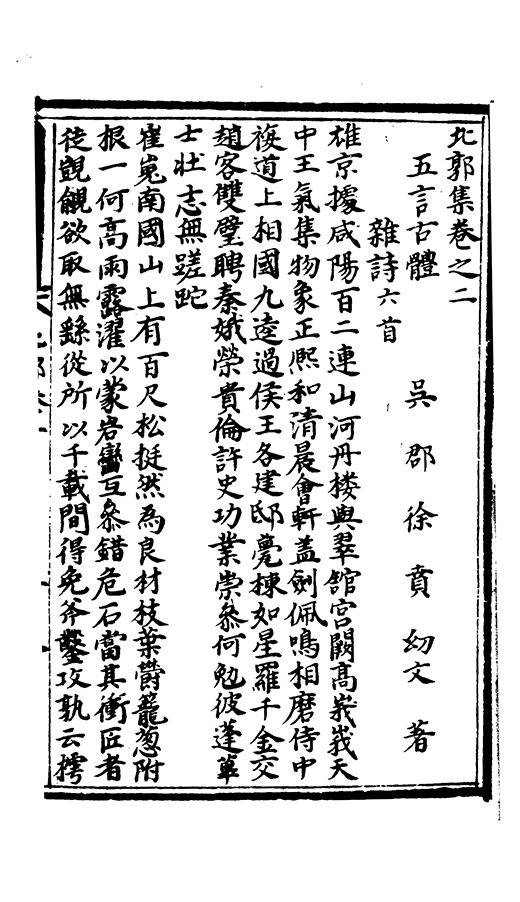 北郭集卷之二
五言古體　吳郡徐賁幼文著
雜詩六首
雄京據咸陽百二連山河丹楼與翠舘宮闕高峩峩天
中王氣集物象正熈和清晨會軒盖劍佩鳴相磨侍中
複道上相國九逵過侯王各建邸甍棟如星羅千金交
趙客雙璧聘秦娥榮貴倫許史功業崇叅何勉彼蓬蓽
士壮志無蹉跎
崔嵬南國山上有百尺松挺然為良材枝葉欝蘢葱附
根一何高雨露濯以蒙岩巒互叅錯危石當其衝匠者
徒覬覦欲取無繇從所以千載間得免斧鑿攻孰云摴